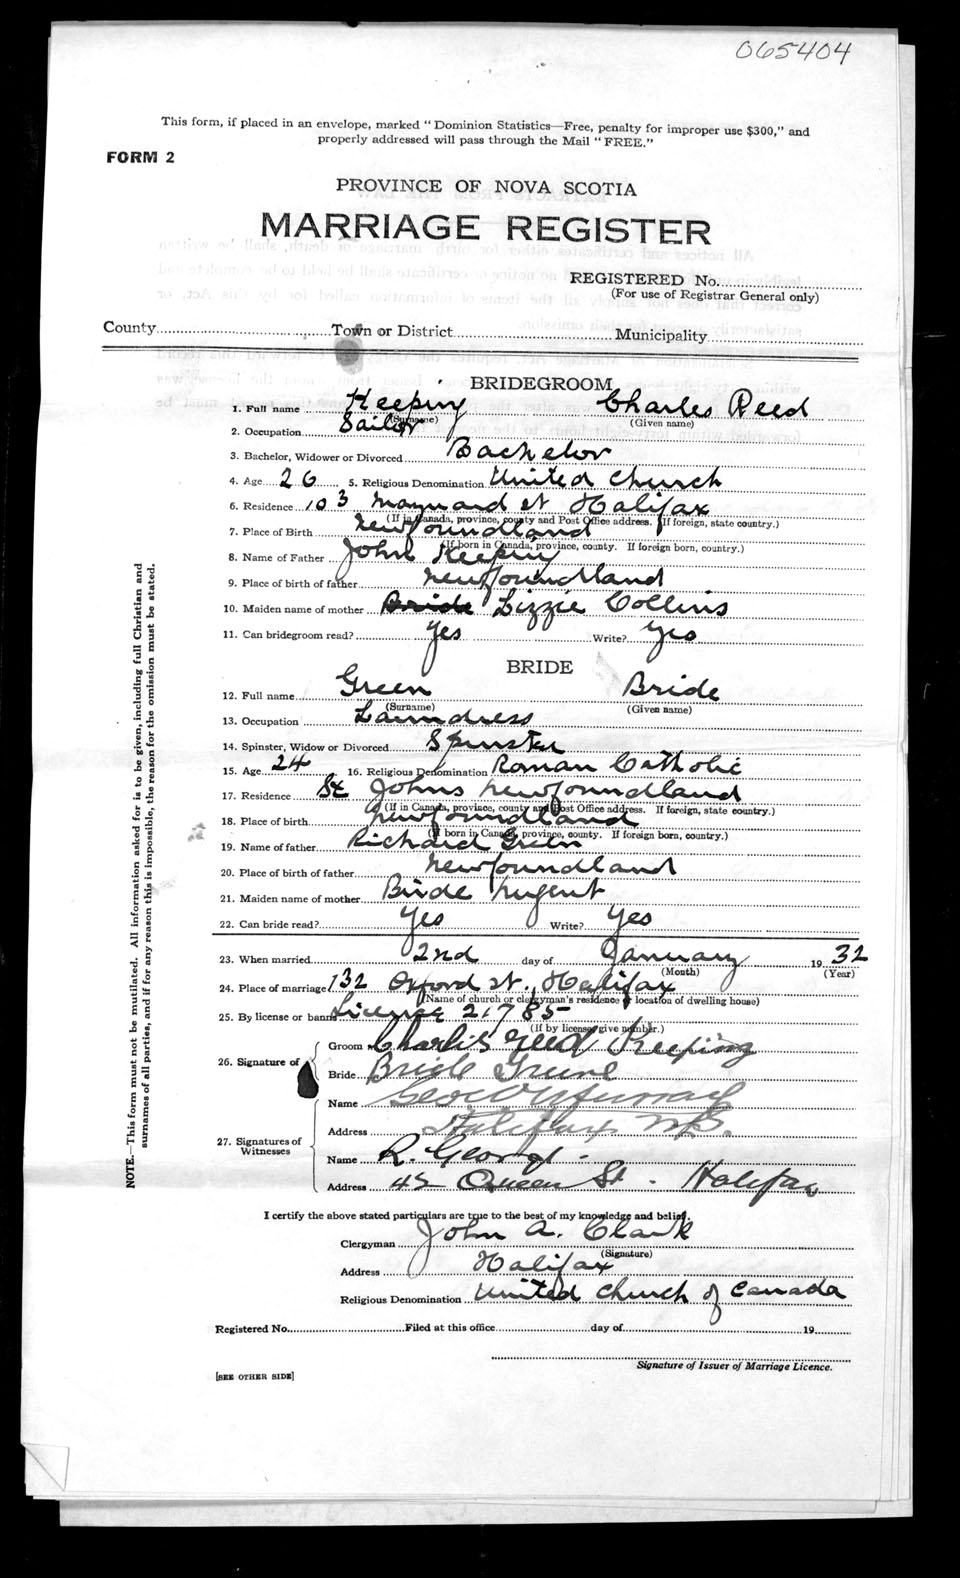 065404
This form, if placed in an envelope, marked "Dominion Statistics—Free, penalty for improper use $300," and
properly addressed will pass through the Mail "FREE."
FORM 2
PROVINCE OF NOVA SCOTIA
MARRIAGE REGISTER
REGISTERED No.
(For use of Registrar General only)
County Town or District Municipality
BRIDEGROOM
1. Full name Keeping Charles Reed
(Surname) (Given name)
2. Occupation Sailor
3. Bachelor, Widower or Divorced Bachelor
4. Age 26 5. Religious Denomination United Church
6. Residence 103 Maynard St Halifax
(If in Canada, province, county and Post Office address. If foreign, state country.)
7. Place of Birth Newfoundland
(If born in Canada, province, county. If foreign born, country.)
8. Name of Father John Keeping
9. Place of birth of father Newfoundland
10. Maiden name of mother Bride Lizzie Collins
11. Can bridegroom read? Yes Write? Yes
BRIDE
12. Full name Green Bride
(Surname) (Given name)
13. Occupation Laundress
14. Spinster, Widow or Divorced Spinster
15. Age 24 16. Religious Denomination Roman Catholic
17. Residence St Johns Newfoundland
(If in Canada, province, county and Post Office address. If foreign, state country.)
18. Place of birth Newfoundland
(If born in Canada, province, county. If foreign born, country.)
19. Name of father Richard Green
20. Place of birth of father Newfoundland
21. Maiden name of mother Bride Nugent
22. Can bride read? Yes Write? Yes
23. When married 2nd day of January 1932
(Month) (Year)
24. Place of marriage 132 Oxford St., Halifax
(Name of church or clergyman's residence or location of dwelling house)
25. By license or banns License 21785
(If by license give number.)
26. Signature of
Groom Charles Reed Keeping
Bride Bride Greene
27. Signatures of Witnesses
Name Murray
Address Halifax N.S.
Name R. George
Address 42 Queen St. Halifax
I certify the above stated particulars are true to the best of my knowledge and belief.
Clergyman John A. Clark
(Signature)
Address Halifax
Religious Denomination United Church of Canada
Registered No. Filed at this office day of 19
Signature of Issuer of Marriage Licence.
[SEE OTHER SIDE]
NOTE.—This form must not be mutilated. All information asked for is to be given, including full Christian and
surnames of all parties, and if for any reason this is impossible, the reason for the omission must be stated.